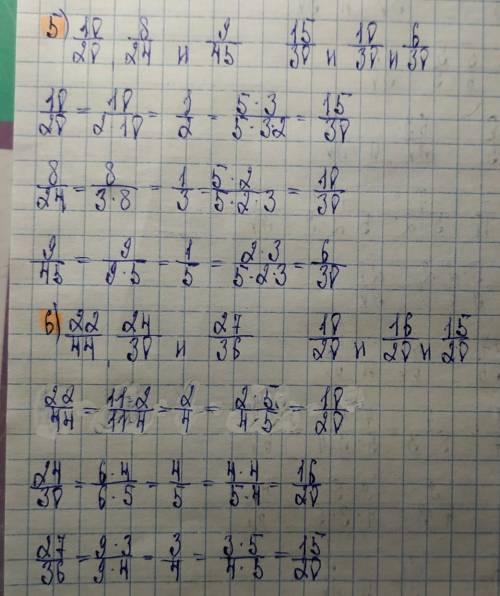 5) 10/20, 8/24 и 9/45 15/30 и 10/30 и 6/30
10/20 = 10/2·10 = 1/2 = 5·3/5·3·2 = 15/30
8/24 = 8/3·8 = 1/3 = 5·2/5·2·3 = 10/30
9/45 = 9/9·5 = 1/5 = 2·3/5·2·3 = 6/30
6) 22/44, 24/30 и 27/36 10/20 и 16/20 и 15/20
22/44 = 11·2/11·4 = 2/4 = 2·5/4·5 = 10/20
24/30 = 6·4/6·5 = 4/5 = 4·4/5·4 = 16/20
27/36 = 9·3/9·4 = 3/4 = 3·5/4·5 = 15/20